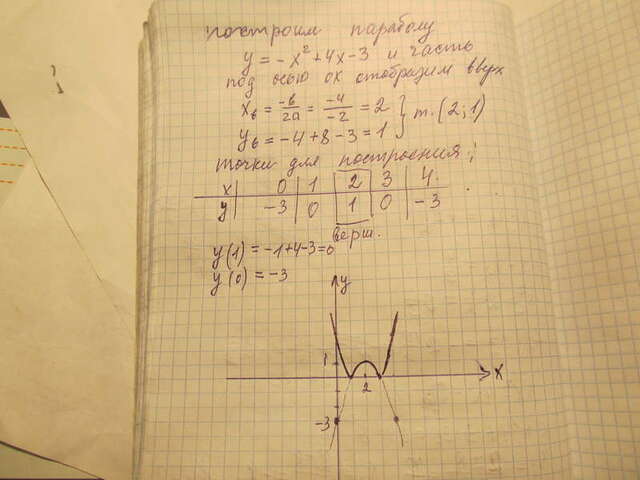 построим параболу
y = -x² + 4x - 3 и часть
под осью ox отобразим вверх
xв = -b/2a = -4/-2 = 2 } т. (2; 1)
yв = -4 + 8 - 3 = 1
точки для построения:
x | 0 | 1 | 2 | 3 | 4
y | -3 | 0 | 1 | 0 | -3
верш.
y(1) = -1+4-3=0
y(0) = -3
y
1
2
x
-3